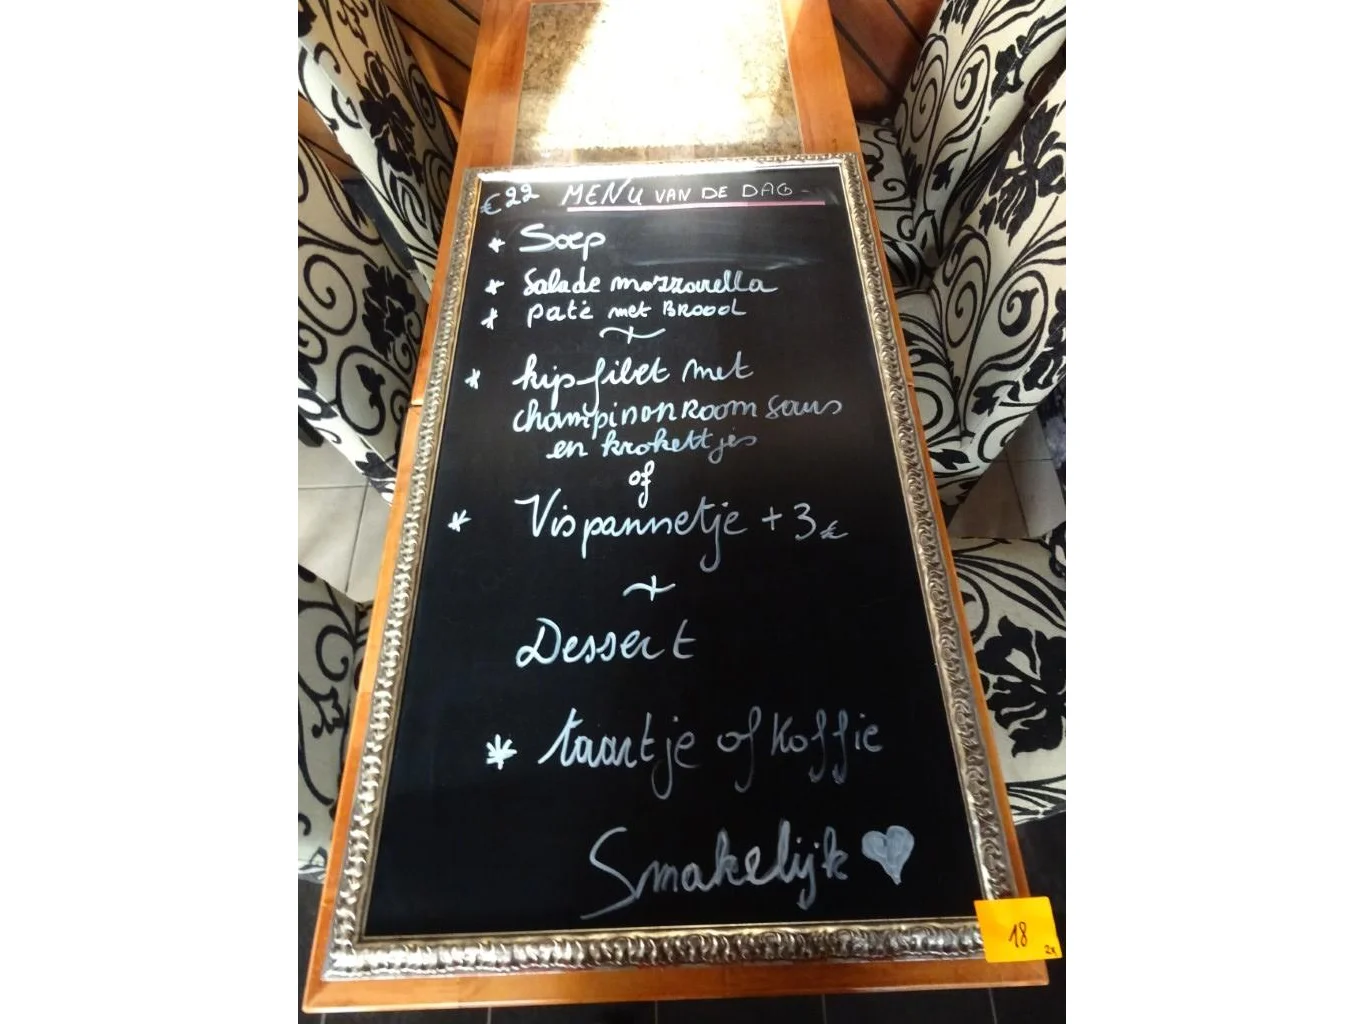 €22 MENU VAN DE DAG -
* Soep
* Salade mozzarella
* paté met BROOD
+
* kipfilet met
champinonROOM saus
en krokettjes
of
* Vispannetje +3€
+
Dessert
* taartje of Koffie
Smakelijk ♥
18
2x